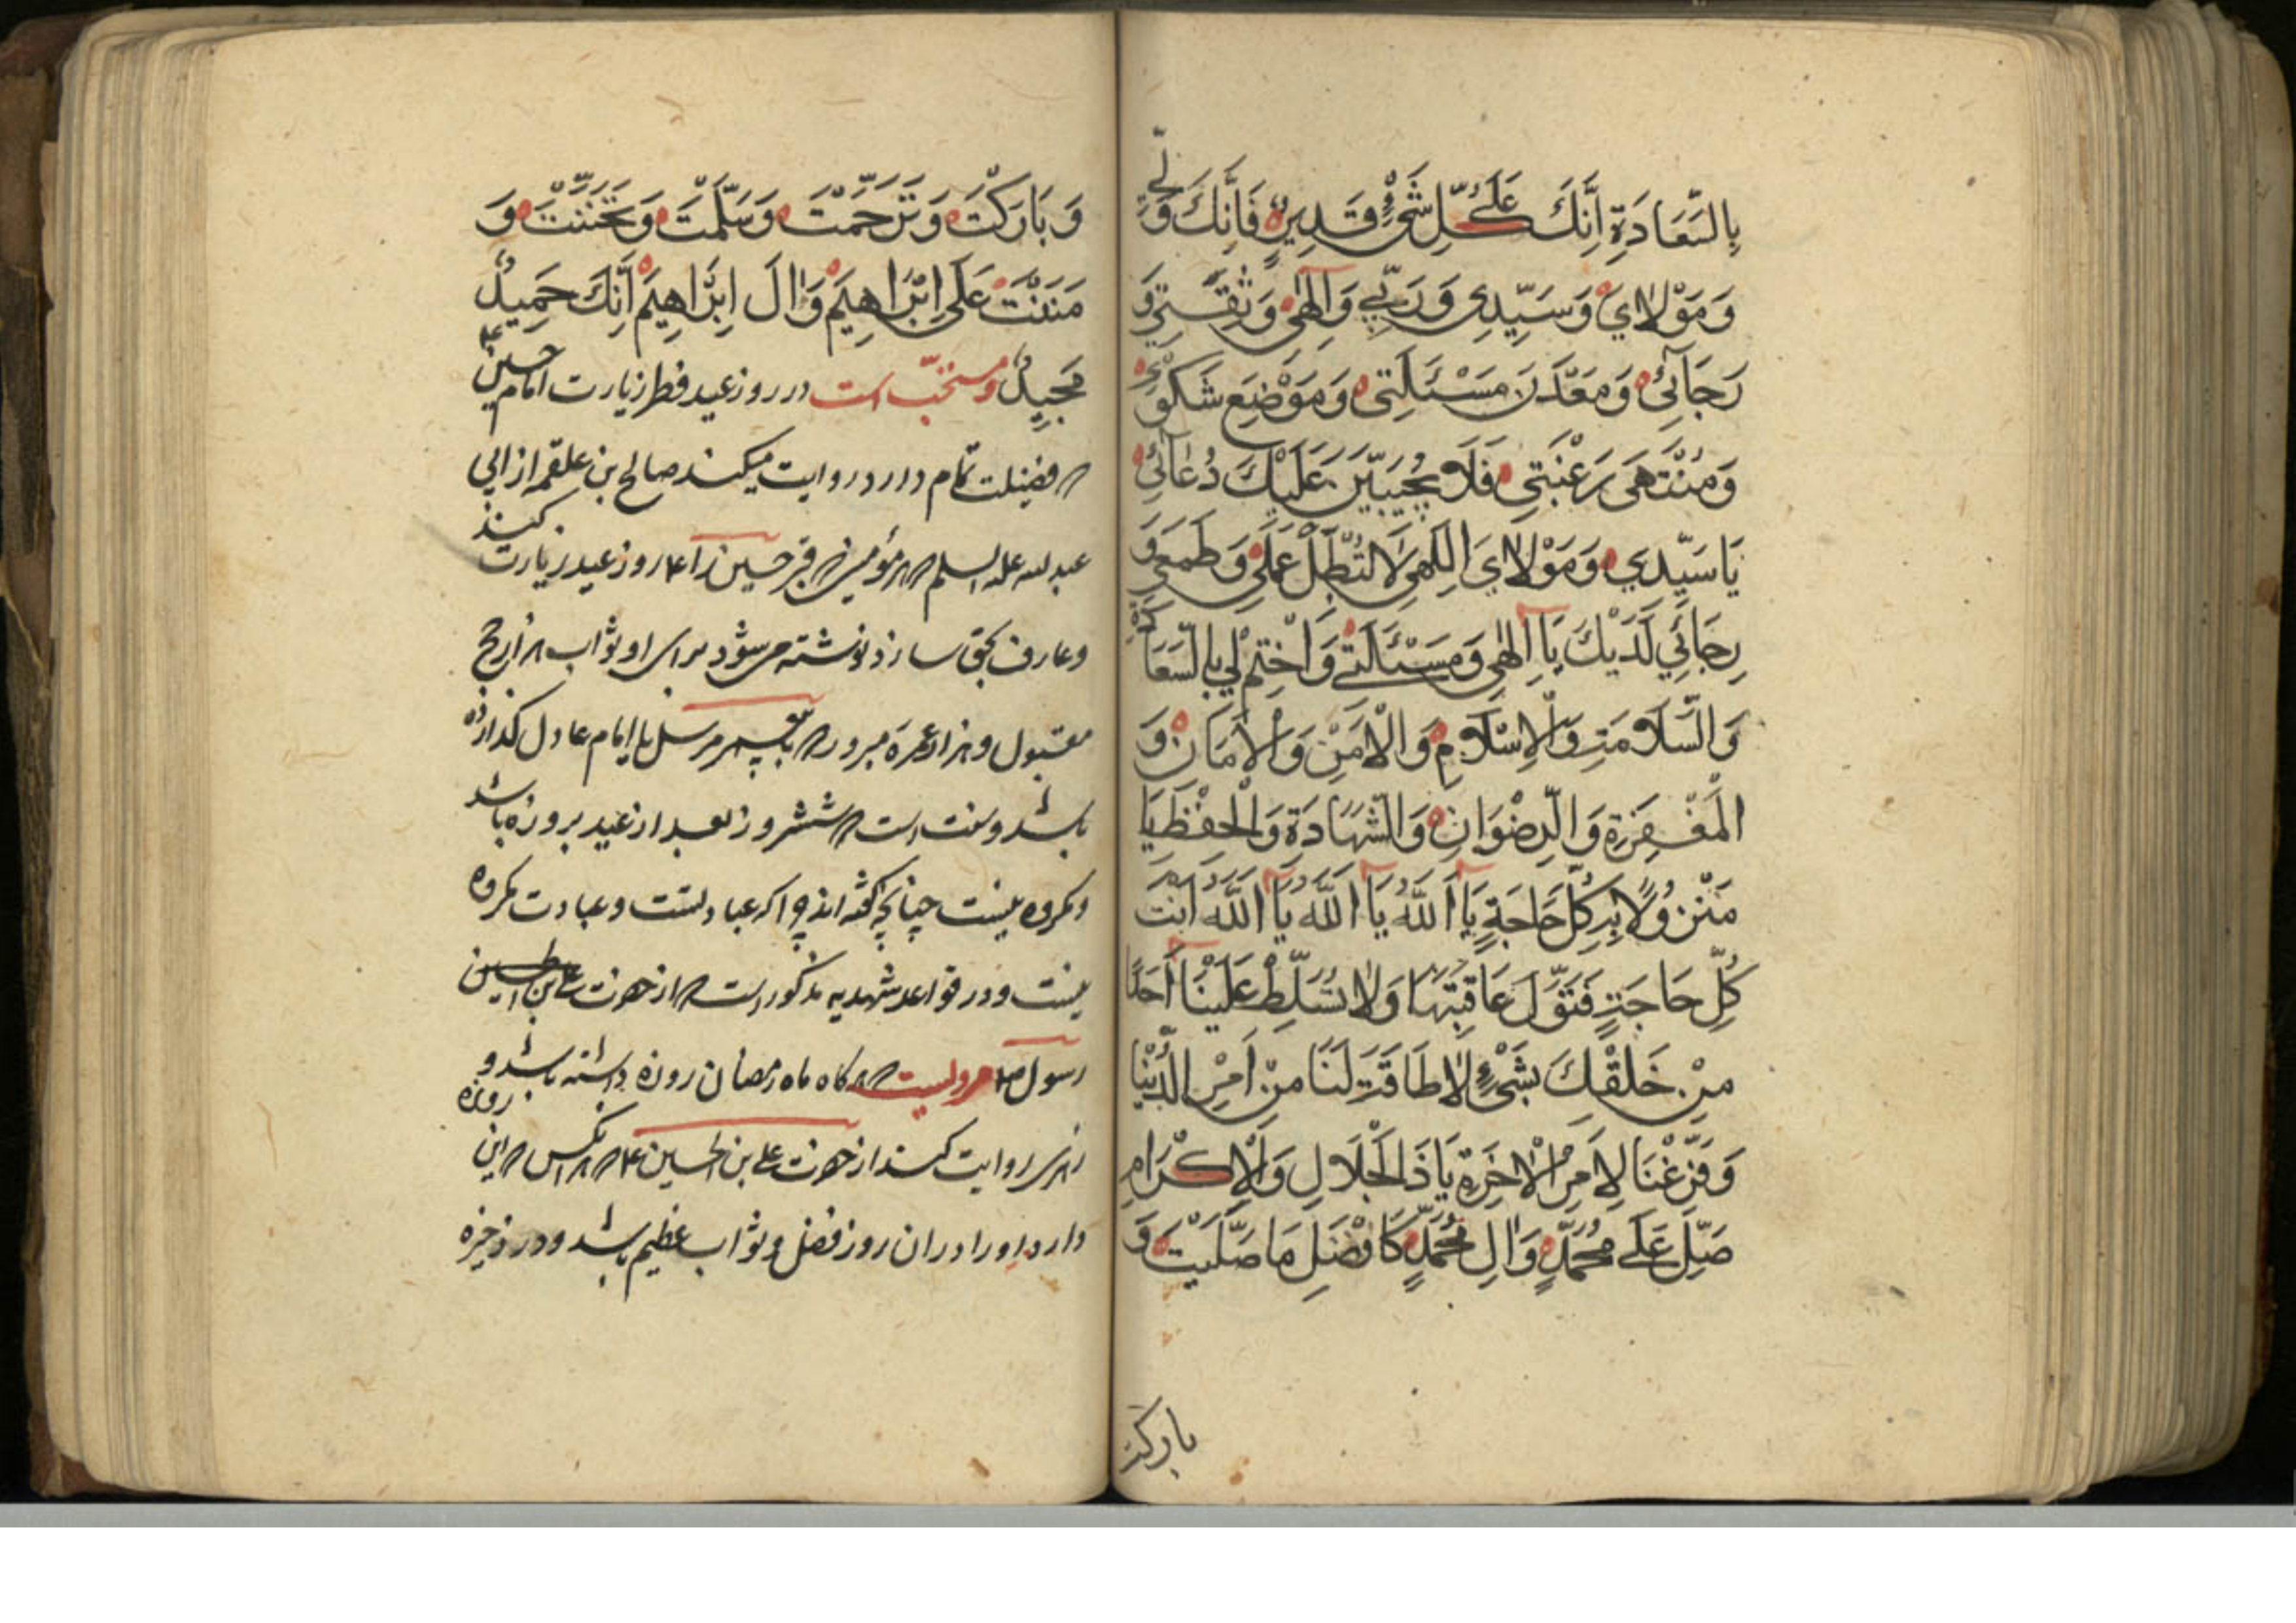 بِالسَّعَادَةِ اِنَّكَ عَلَى كُلِّ شَيْءٍ قَدِيرٌ فَاِنَّكَ وَلِيِّي
وَمَوْلَايَ وَسَيِّدِي وَرَبِّي وَاِلٰهِي وَثِقَتِي وَ
رَجَائِي وَمَعْدَنَ مَسْئَلَتِي وَمَوْضِعَ شَكْوَيٰ
وَمُنْتَهَى رَغْبَتِي فَلَا يُخَيَّبَنَّ عَلَيْكَ دُعَائِي
يَا سَيِّدِي وَمَوْلَايَ اِلٰهِي لَا تُبْطِلْ عَمَلِي وَطَمَعِي وَ
رَجَائِي لَدَيْكَ يَا اِلٰهِي وَمَسْئَلَتِي وَاخْتِمْ لِي بِالسَّعَادَةِ
وَالسَّلَامَةِ وَالْاِسْلَامِ وَالْاَمْنِ وَالْاَمَانِ وَ
الْمَغْفِرَةِ وَالرِّضْوَانِ وَالشَّهَادَةِ وَالْحِفْظِ يَا
مَنْزُولًا بِهِ كُلُّ حَاجَةٍ يَا اَللهُ يَا اَللهُ يَا اَللهُ اَنْتَ
لِكُلِّ حَاجَةٍ فَتَوَلَّ عَاقِبَتَهَا وَلَا تُسَلِّطْ عَلَيْنَا اَحَدًا
مِنْ خَلْقِكَ بِشَيْءٍ لَا طَاقَةَ لَنَا مِنْ اَمْرِ الدُّنْيَا
وَفَرِّغْنَا لِاَمْرِ الْاٰخِرَةِ يَا ذَا الْجَلَالِ وَالْاِكْرَامِ
صَلِّ عَلَى مُحَمَّدٍ وَاٰلِ مُحَمَّدٍ كَاَفْضَلِ مَا صَلَّيْتَ وَ
بارکت
وَبَارَكْتَ وَتَرَحَّمْتَ وَسَلَّمْتَ وَتَحَنَّنْتَ وَ
مَنَنْتَ عَلَى اِبْرَاهِيمَ وَاٰلَ اِبْرَاهِيمَ اِنَّكَ حَمِيدٌ
مَجِيدٌ ومستحبّ است در روز عید فطر زیارت امام حسین ع
که فضیلت تمام دارد روایت میکند صالح بن علقمه از ابی
عبد الله علیه السلم که هر مؤمن که قبر حسین را ع روز عید زیارت کند
وعارف بحق سازد نوشته می شود برای او ثواب هزار حج
مقبول و هزار عمره مبرور که با پیغمبر مرسل یا امام عادل گذارده
باشد وسنت است که شش روز بعد از عید بروزه باشد
ومکروه نیست چنانچه گفته اند چرا که عبادتست وعبادت مکروه
نیست ودر قواعد شهدیه مذکور است که از حضرت علی بن الحسین
رسول ص مرویست که هر گاه ماه رمضان روزه داشته باشد و
زهری روایت کند از حضرت علی بن الحسین ع که هر انکس که این روزه
دارد اورا در ان روز فضل وثواب عظیم باشد ودر ذخیره